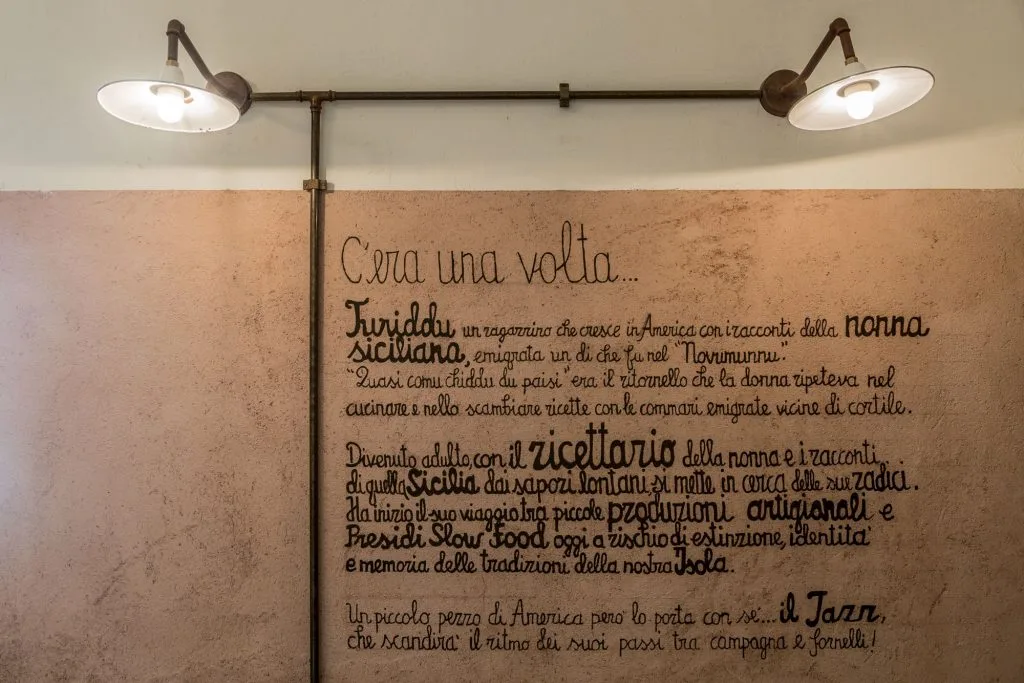 C'era una volta...
Turiddu un ragazzino che cresce in America con i racconti della nonna
siciliana, emigrata un dì che fu nel "Novimunnu".
"Quasi comu chiddu du paisi" era il ritornello che la donna ripeteva nel
cucinare e nello scambiare ricette con le commari emigrate vicine di cortile.
Divenuto adulto, con il ricettario della nonna e i racconti
di quella Sicilia dai sapori lontani, si mette in cerca delle sue radici.
Ha inizio il suo viaggio tra piccole produzioni artigianali e
Presidi Slow Food oggi a rischio di estinzione, identita'
e memoria delle tradizioni della nostra Isola.
Un piccolo pezzo di America pero' lo porta con se'... il Jazz,
che scandira' il ritmo dei suoi passi tra campagna e fornelli!